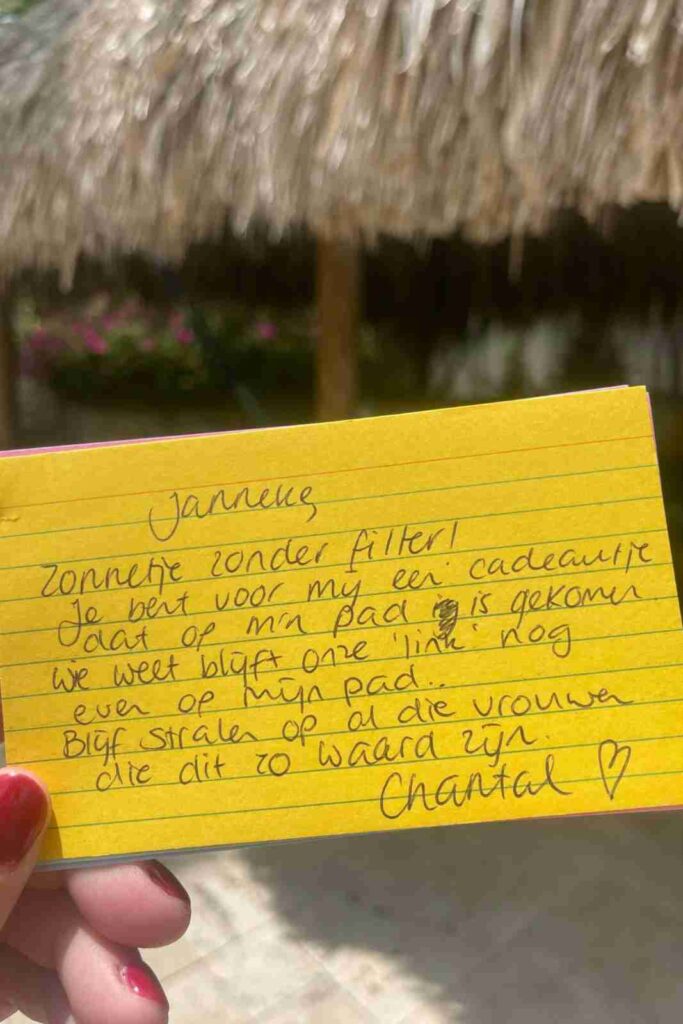 Janneke,
Zonnetje zonder filter!
Je bent voor mij een cadeautje
dat op m'n pad is gekomen
Wie weet blijft onze 'link' nog
even op mijn pad..
Blijf stralen op al die vrouwen
die dit zo waard zijn.
Chantal ♡